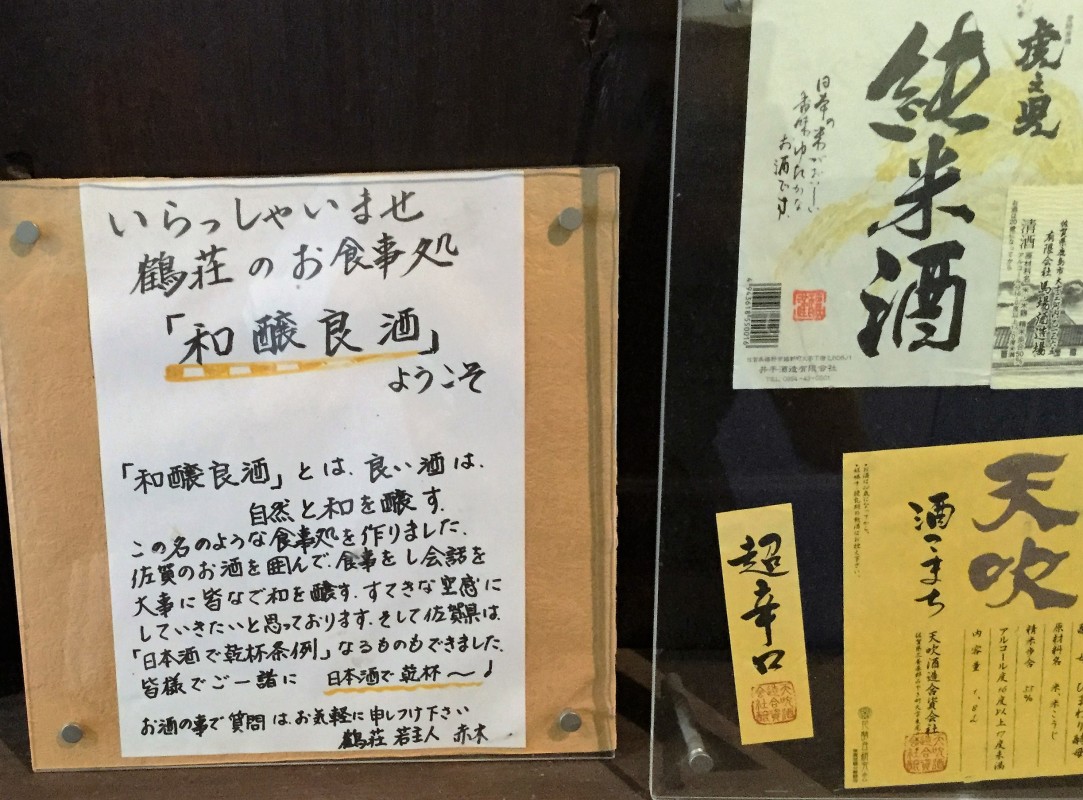 いらっしゃいませ
鶴荘のお食事処
「和醸良酒」
ようこそ
「和醸良酒」とは、良い酒は、
自然と和を醸す。
この名のような食事処を作りました。
佐賀のお酒を囲んで、食事をし会話を
大事に皆なで和を醸す。すてきな空感に
していきたいと思っております。そして佐賀県は、
「日本酒で乾杯条例」なるものもできました。
皆様でご一諸に 日本酒で乾杯〜♪
お酒の事で質問は、お気軽に申しつけ下さい
鶴荘 若主人 赤木
虎之児
純米酒
日本の米でおいしい
香味ゆたかな
お酒です。
4943618550016
井手酒造有限会社
佐賀県鹿島市
有限会社馬場酒造場
清酒
原材料名
超辛口
天吹酒造合資会社
天吹
酒こまち
原材料名 米、米こうじ
精米歩合 55%
アルコール度
内容量
天吹酒造合資会社